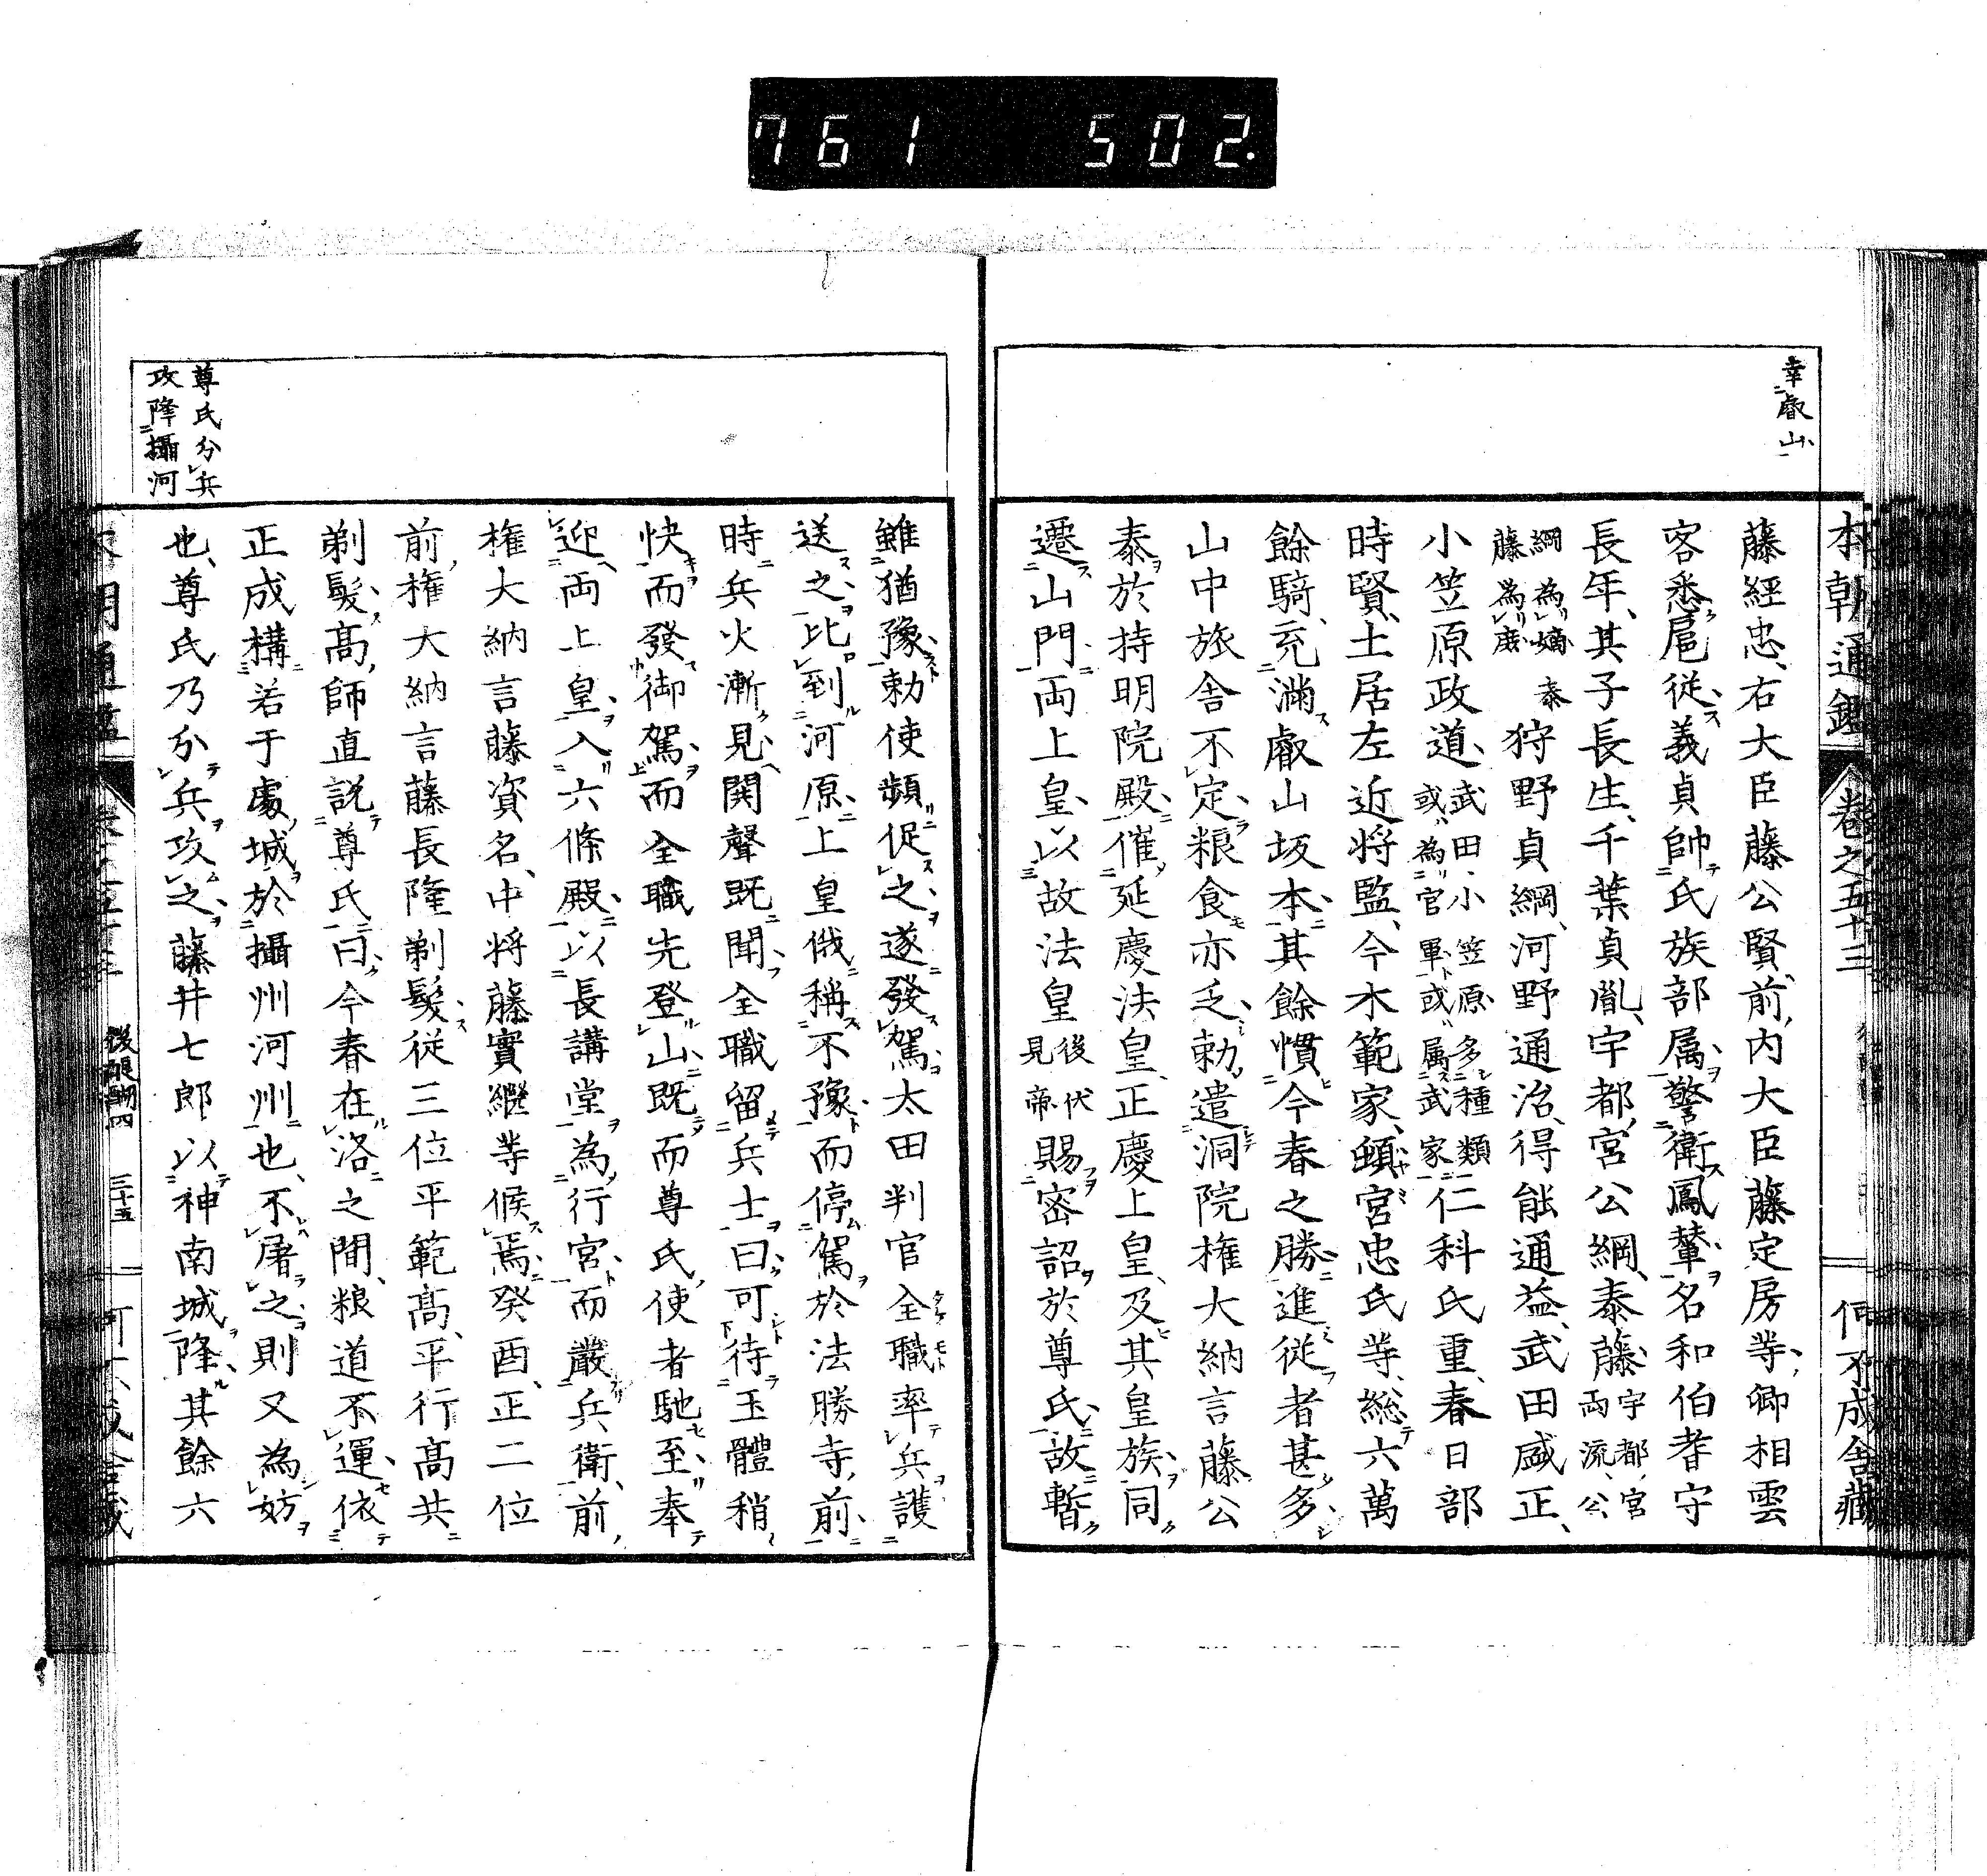 761 502.
本朝通鑑 卷之五十三 何不成舎藏
幸叡山
藤經忠、右大臣藤公賢、前内大臣藤定房等、卿相雲
客悉扈從、義貞帥氏族部属警衛鳳輦、名和伯耆守
長年、其子長生、千葉貞胤、宇都宮公綱、泰藤、宇都宮両流、公
綱為嫡、泰藤為庶狩野貞綱、河野通治、得能通益、武田盛正、
小笠原政道、武田小笠原多種類或為官軍或属武家仁科氏重、春日部
時賢、土居左近将監、今木範家、頓宮忠氏等、総六萬
餘騎、充滿叡山坂本、其餘慣今春之勝進從者甚多、
山中旅舎不定粮食亦乏、勅遣洞院権大納言藤公
泰於持明院殿、催延慶法皇、正慶上皇、及其皇族、同
遷山門、両上皇、以故法皇後伏見帝賜密詔於尊氏、故暫
雖猶豫、勅使頻促之、遂發駕、太田判官全職率兵護
送之、比到河原、上皇俄稱不豫、而停駕於法勝寺、前
時兵火漸見、鬨聲既聞、全職留兵士曰、可待玉體稍
快而發御駕、而全職先登山、既而尊氏使者馳至、奉
迎両上皇、入六條殿、以長講堂為行宮、而嚴兵衛、前
権大納言藤資名、中将藤實繼等候焉、癸酉、正二位
前権大納言藤長隆剃髮、従三位平範高、平行高共
剃髮、高師直説尊氏曰、今春在洛之間、粮道不運、依
正成構若于處城於攝州河州也、不屠之則又為妨
也、尊氏乃分兵攻之、藤井七郎以神南城降、其餘六
尊氏分兵
攻降攝河
後醍醐四 三十五